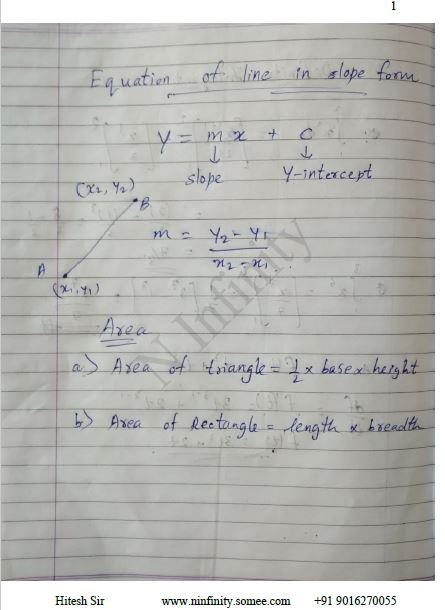 1
Equation of line in slope form
y = mx + c
↓ ↓
slope Y-intercept
(x2, y2)
B
m = y2 - y1 / x2 - x1
A
(x1, y1)
Area
a> Area of triangle = 1/2 x base x height
b> Area of Rectangle = length x breadth
N Infinity
Hitesh Sir www.ninfinity.somee.com +91 9016270055